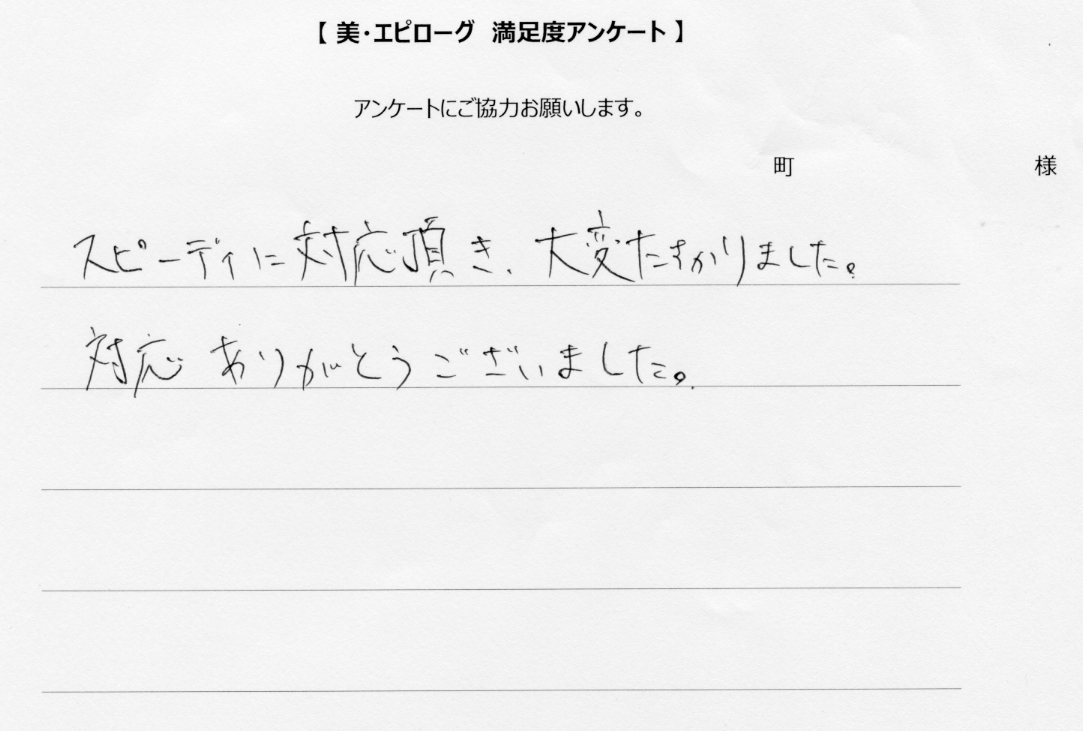 【 美・エピローグ 満足度アンケート 】
アンケートにご協力お願いします。
町 様
スピーディに対応頂き、大変たすかりました。
対応 ありがとうございました。